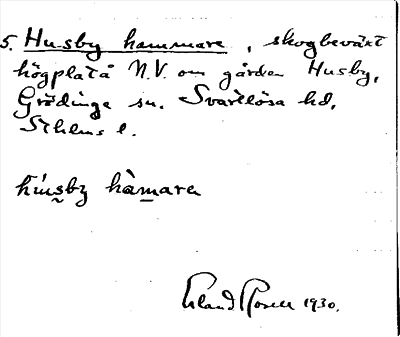 5. Husby hammare, skogbeväxt
högplatå N.V. om gården Husby,
Grödinge sn. Svartlösa hd,
Sthlms l.
húsby hàmara
Erland Rosell 1930.